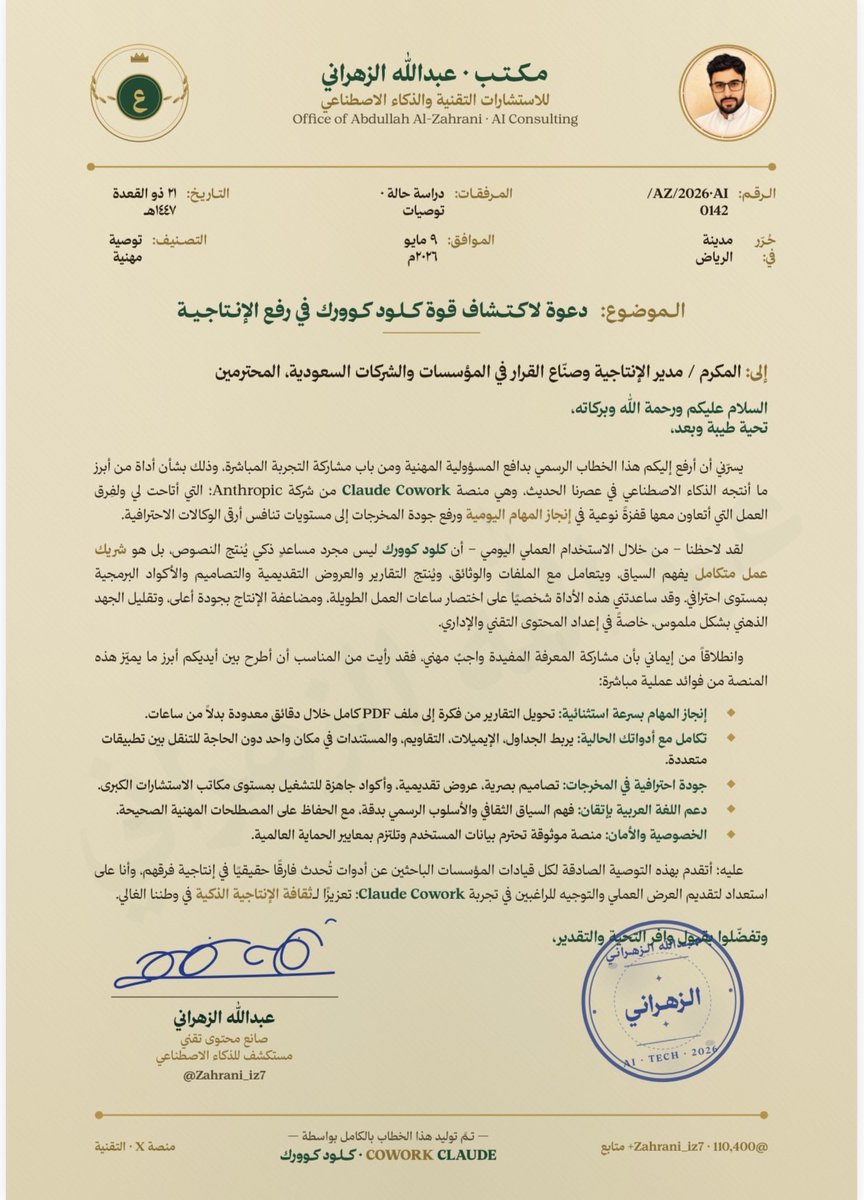 مكتب · عبدالله الزهراني
للاستشارات التقنية والذكاء الاصطناعي
Office of Abdullah Al-Zahrani · AI Consulting
ع
الرقم: AZ/2026·AI/
0142
المرفقات: دراسة حالة ·
توصيات
التاريخ: ٢١ ذو القعدة
١٤٤٧هـ
حُرّر في: مدينة
الرياض
الموافق: ٩ مايو
٢٠٢٦م
التصنيف: توصية
مهنية
الموضوع: دعوة لاكتشاف قوة كلود كوورك في رفع الإنتاجية
إلى: المكرم / مدير الإنتاجية وصنّاع القرار في المؤسسات والشركات السعودية، المحترمين
السلام عليكم ورحمة الله وبركاته،
تحية طيبة وبعد،
يسرّني أن أرفع إليكم هذا الخطاب الرسمي بدافع المسؤولية المهنية ومن باب مشاركة التجربة المباشرة، وذلك بشأن أداة من أبرز
ما أنتجه الذكاء الاصطناعي في عصرنا الحديث، وهي منصة Claude Cowork من شركة Anthropic؛ التي أتاحت لي ولفِرق
العمل التي أتعاون معها قفزةً نوعية في إنجاز المهام اليومية ورفع جودة المخرجات إلى مستويات تنافس أرقى الوكالات الاحترافية.
لقد لاحظنا – من خلال الاستخدام العملي اليومي – أن كلود كوورك ليس مجرد مساعدٍ ذكي يُنتج النصوص، بل هو شريك
عمل متكامل يفهم السياق، ويتعامل مع الملفات والوثائق، ويُنتج التقارير والعروض التقديمية والتصاميم والأكواد البرمجية
بمستوى احترافي. وقد ساعدتني هذه الأداة شخصيًا على اختصار ساعات العمل الطويلة، ومضاعفة الإنتاج بجودة أعلى، وتقليل الجهد
الذهني بشكل ملموس، خاصةً في إعداد المحتوى التقني والإداري.
وانطلاقاً من إيماني بأن مشاركة المعرفة المفيدة واجبٌ مهني، فقد رأيت من المناسب أن أطرح بين أيديكم أبرز ما يميّز هذه
المنصة من فوائد عملية مباشرة:
إنجاز المهام بسرعة استثنائية: تحويل التقارير من فكرة إلى ملف PDF كامل خلال دقائق معدودة بدلاً من ساعات.
تكامل مع أدواتك الحالية: يربط الجداول، الإيميلات، التقاويم، والمستندات في مكان واحد دون الحاجة للتنقل بين تطبيقات
متعددة.
جودة احترافية في المخرجات: تصاميم بصرية، عروض تقديمية، وأكواد جاهزة للتشغيل بمستوى مكاتب الاستشارات الكبرى.
دعم اللغة العربية بإتقان: فهم السياق الثقافي والأسلوب الرسمي بدقة، مع الحفاظ على المصطلحات المهنية الصحيحة.
الخصوصية والأمان: منصة موثوقة تحترم بيانات المستخدم وتلتزم بمعايير الحماية العالمية.
عليه؛ أتقدم بهذه التوصية الصادقة لكل قيادات المؤسسات الباحثين عن أدوات تُحدث فارقًا حقيقيًا في إنتاجية فرقهم، وأنا على
استعداد لتقديم العرض العملي والتوجيه للراغبين في تجربة Claude Cowork؛ تعزيزًا لـثقافة الإنتاجية الذكية في وطننا الغالي.
وتفضّلوا بقبول وافر التحية والتقدير،
عبدالله الزهراني
الزهراني
AI · TECH · 2026
عبدالله الزهراني
صانع محتوى تقني
مستكشف للذكاء الاصطناعي
@Zahrani_iz7
@Zahrani_iz7 · 110,400+ متابع
— تمّ توليد هذا الخطاب بالكامل بواسطة —
COWORK CLAUDE · كلود كوورك
منصة X · التقنية